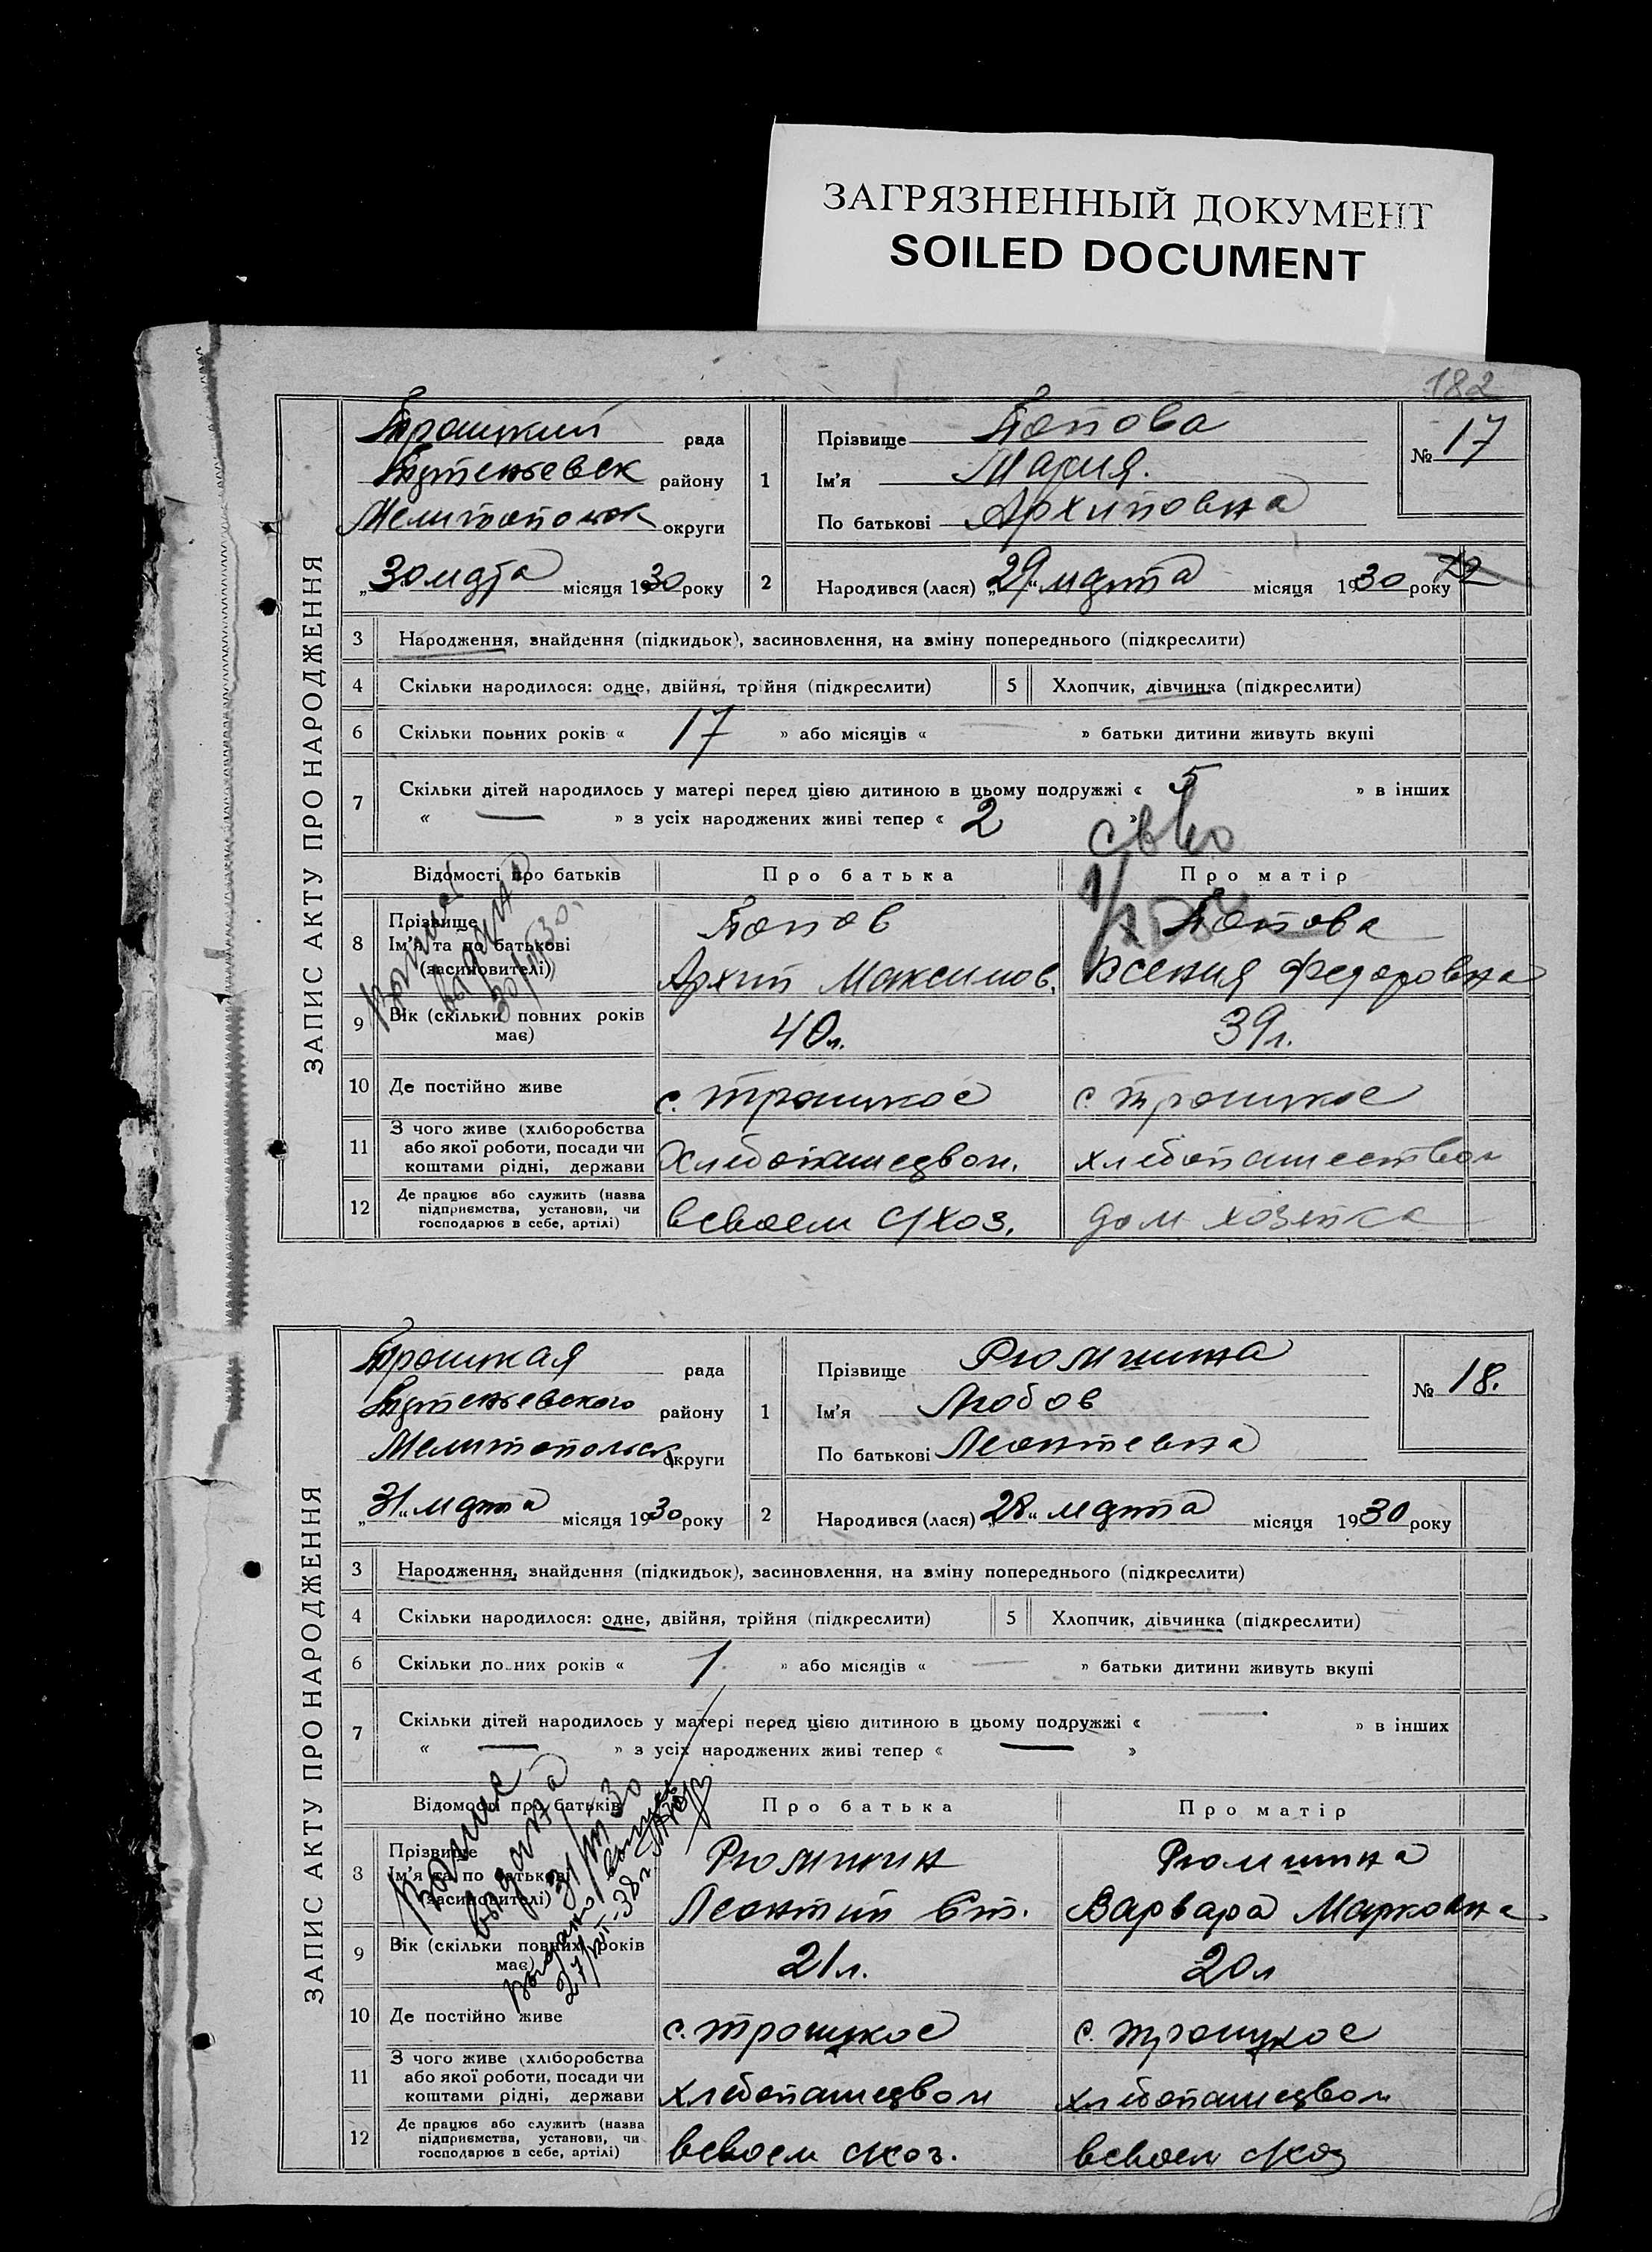 ЗАГРЯЗНЕННЫЙ ДОКУМЕНТ
SOILED DOCUMENT
182
ЗАПИС АКТУ ПРО НАРОДЖЕННЯ
Троицкий рада
району
Мелитопольск округи
„30 марта місяця 1930 року
1 Прізвище Попова
Ім'я Мария.
По батькові Архиповна
№ 17
2 Народився (лася) „29" марта місяця 1930 року
3 Народження, знайдення (підкидьок), засиновлення, на зміну попереднього (підкреслити)
4 Скільки народилося: одне, двійня, трійня (підкреслити) 5 Хлопчик, дівчинка (підкреслити)
6 Скільки повних років « 17 » або місяців « — » батьки дитини живуть вкупі
7 Скільки дітей народилось у матері перед цією дитиною в цьому подружжі « 5 » в інших
« — » з усіх народжених живі тепер « 2 »
Відомості про батьків Про батька Про матір
8 Прізвище Попов Попова
Ім'я та по батькові
(засиновителі) Архип Максимов. Ксения Федоровна
9 Вік (скільки повних років має) 40 л. 39 л.
10 Де постійно живе с. Троицкое с. Троицкое
11 З чого живе (хліборобства
або якої роботи, посади чи
коштами рідні, держави Хлебопашеством. хлебопашеством
12 Де працює або служить (назва
підприємства, установи, чи
господарює в себе, артілі) в своем с/хоз. дом. хозяйка
ЗАПИС АКТУ ПРО НАРОДЖЕННЯ
Троицкая рада
району
Мелитопольск округи
„31" марта місяця 1930 року
1 Прізвище Рюмшина
Ім'я Любов
По батькові Леонтевна
№ 18.
2 Народився (лася) „28" марта місяця 1930 року
3 Народження, знайдення (підкидьок), засиновлення, на зміну попереднього (підкреслити)
4 Скільки народилося: одне, двійня, трійня (підкреслити) 5 Хлопчик, дівчинка (підкреслити)
6 Скільки повних років « 1 » або місяців « — » батьки дитини живуть вкупі
7 Скільки дітей народилось у матері перед цією дитиною в цьому подружжі « — » в інших
« — » з усіх народжених живі тепер « — »
Відомості про батьків Про батька Про матір
8 Прізвище Рюмшин Рюмшина
Ім'я та по батькові
(засиновителі) Леонтий Варвара Марковна
9 Вік (скільки повних років має) 21 л. 20 л
10 Де постійно живе с. Троицкое с. Троицкое
11 З чого живе (хліборобства
або якої роботи, посади чи
коштами рідні, держави хлебопашеством хлебопашеством
12 Де працює або служить (назва
підприємства, установи, чи
господарює в себе, артілі) в своем с/хоз. в своем с/хоз